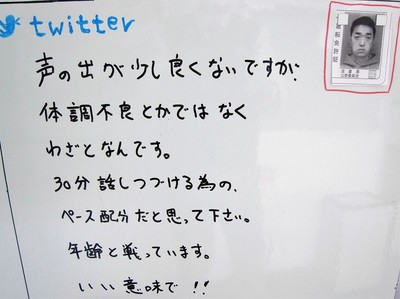 twitter
声の出が少し良くないですが、
体調不良とかではなく
わざとなんです。
30分話しつづける為の、
ペース配分だと思って下さい。
年齢と戦っています。
いい意味で!!
運転免許証